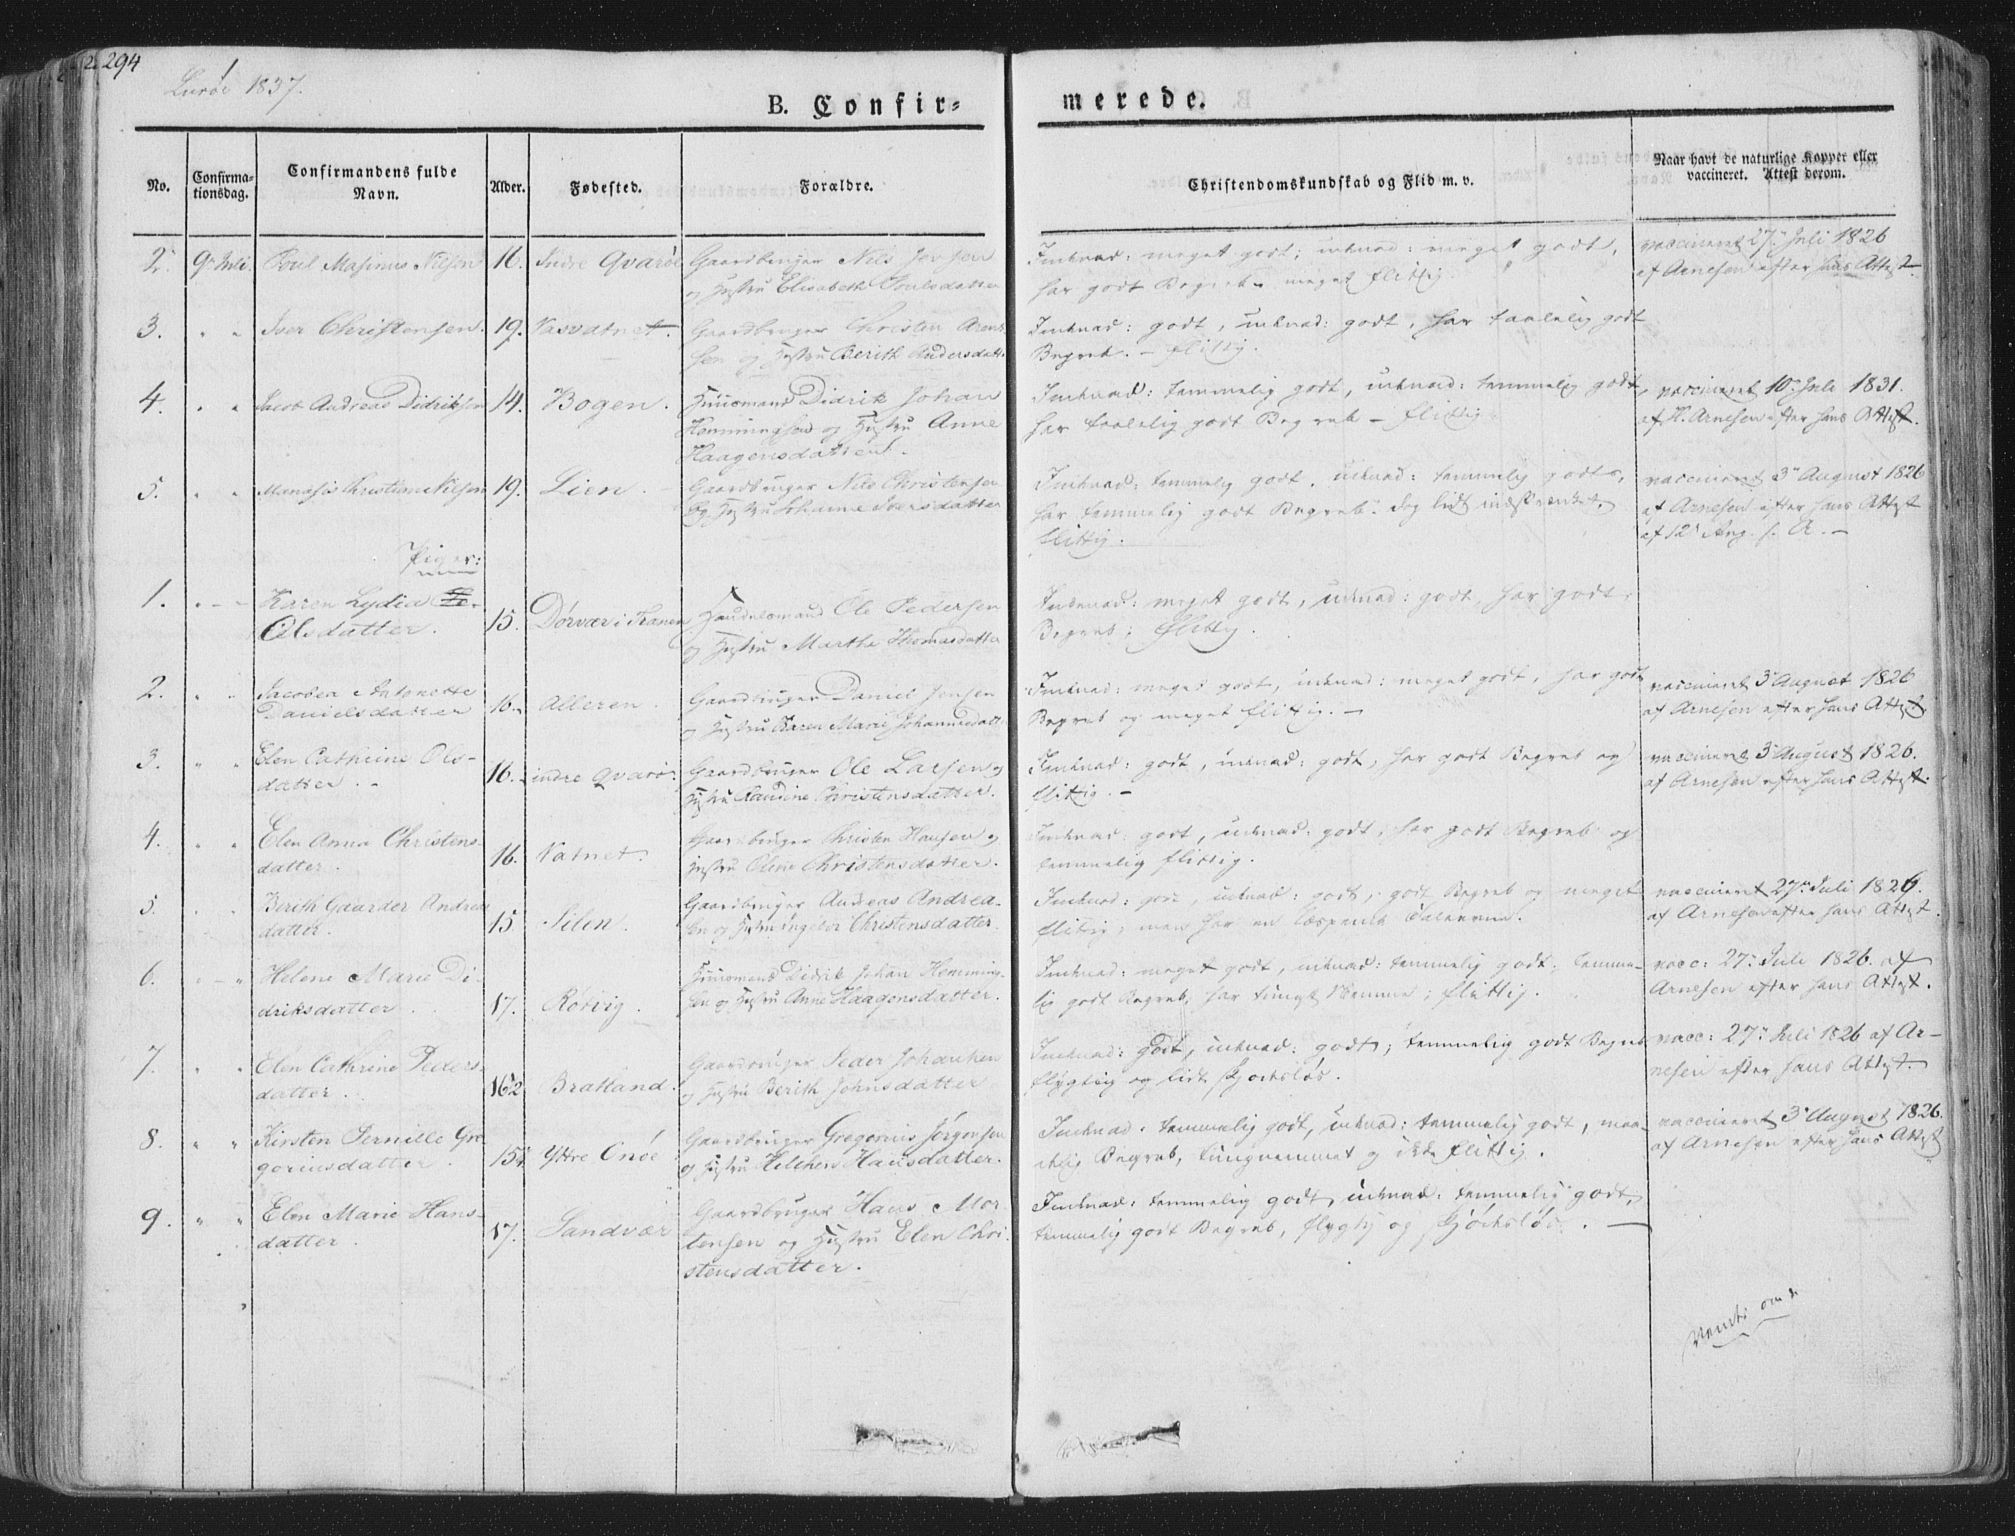 294
Lurøe 1837.
B. Confir=
merede.
No.
Confirma-
tionsdag.
Confirmandens fulde
Navn.
Alder.
Fødested.
Forældre.
Christendomskundskab og Flid m. v.
Naar havt de naturlige Kopper eller
vaccineret. Attest derom.
2. 9 Juli. Poul Masinus Nilsen 16. Indre Qvarøe Gaardbruger Nils Jensen
og Hustru Elisabeth Poulsdatter
Indenad: meget godt; udenad: meget godt,
har godt Begreb - meget flittig
vaccineret 27 Juli 1826
af Arnesen efter hans Attest
3. " " Iver Christensen. 19. Vasvatnet Gaardbruger Christen Arent-
sen og Hustru Berith Andersdatt.
Indenad: godt, udenad: godt, har taalelig godt
Begreb. - flittig.
4. " " Jacob Andreas Didriksen 14. Bogen. Huusmand Didrik Johan
Hemmingsen og Hustru Anne
Haagensdatter.
Indenad: temmelig godt, udenad: temmelig godt,
har taalelig godt Begreb - flittig
vaccineret 10 Juli 1831.
af H. Arnesen efter hans Attest.
5. " " Manasse Christian Nilsen 19. Lien. Gaardbruger Nils Christensen
og Hustru Johanna Iversdatter
Indenad: temmelig godt, udenad: temmelig godt,
har temmelig godt Begreb. dog lidt indskrænket,
flittig.
vaccineret 3 August 1826
af Arnesen efter hans Attest
af 12 Aug. s. A. -
Piger:
1. " " Karen Lydia
Olsdatter. 15. Dørvær i Trænen Handelsmand Ole Pedersen
og Hustru Marthe Thomasdatter
Indenad: meget godt, udenad: godt, har godt
Begreb; flittig.
2. " " Jacobea Antonette
Danielsdatter 16. Alleren. Gaardbruger Daniel Jensen
og Hustru Karen Marie Johannesdatt.
Indenad: meget godt, udenad: meget godt, har godt
Begreb og meget flittig. -
vaccineret 3 August 1826
af Arnesen efter hans Attest
3. " " Elen Cathrine Ols-
datter. - 16. indre Qvarøe. Gaardbruger Ole Larsen og
Hustru Claudine Christensdatter.
Indenad: godt, udenad: godt, har godt Begreb og
flittig. -
vaccineret 3 August 1826.
af Arnesen efter hans Attest.
4. " " Elen Anna Christens-
datter. 16. Vatnet. Gaardbruger Christen Hansen og
Hustru Oline Christensdatter.
Indenad: godt, udenad: godt, har godt Begreb og
temmelig flittig.
5. " " Berith Gaarder Andreas
datter. 15 Selen. Gaardbruger Andreas Andrea-
sen og Hustru Ingebor Christensdatter.
Indenad: godt, udenad: godt, godt Begreb og meget
flittig, men har en læspende Talerone.
vaccineret 27 Juli 1826.
af Arnesen efter hans Attest.
6. " " Helene Marie Di-
driksdatter. 17. Rørvig. Huusmand Didrik Johan Hemming-
sen og Hustru Anne Haagensdatter.
Indenad: meget godt, udenad: temmelig godt, temme-
lig godt Begreb, har tungt Nemme; flittig.
vacc: 27 Juli 1826. af
Arnesen efter hans Attest.
7. " " Elen Cathrine Peders-
datter. 16½ Bratland. Gaardbruger Peder Johansen
og Hustru Berith Johnsdatter
Indenad: godt, udenad: godt; temmelig godt Begreb
flygtig og lidt skjødesløs.
vacc: 27 Juli 1826 af Ar-
nesen efter hans Attest.
8. " " Kirsten Pernille Gre
goriusdatter. 15¼ Yttre Onøe Gaardbruger Gregorius Jørgensen
og Hustru Hilchen Hansdatter.
Indenad: temmelig godt, udenad: temmelig godt, maa-
delig Begreb, tungnemmet og ikke flittig.
vaccineret 3 August 1826.
af Arnesen efter hans Attest
9. " " Elen Marie Hans-
datter. 17. Sandvær Gaardbruger Hans Mor-
tensen og Hustru Elen Chri-
stensdatter.
Indenad: temmelig godt, udenad: temmelig godt,
temmelig godt Begreb, flygtig og skjødesløs. -
Vendes om